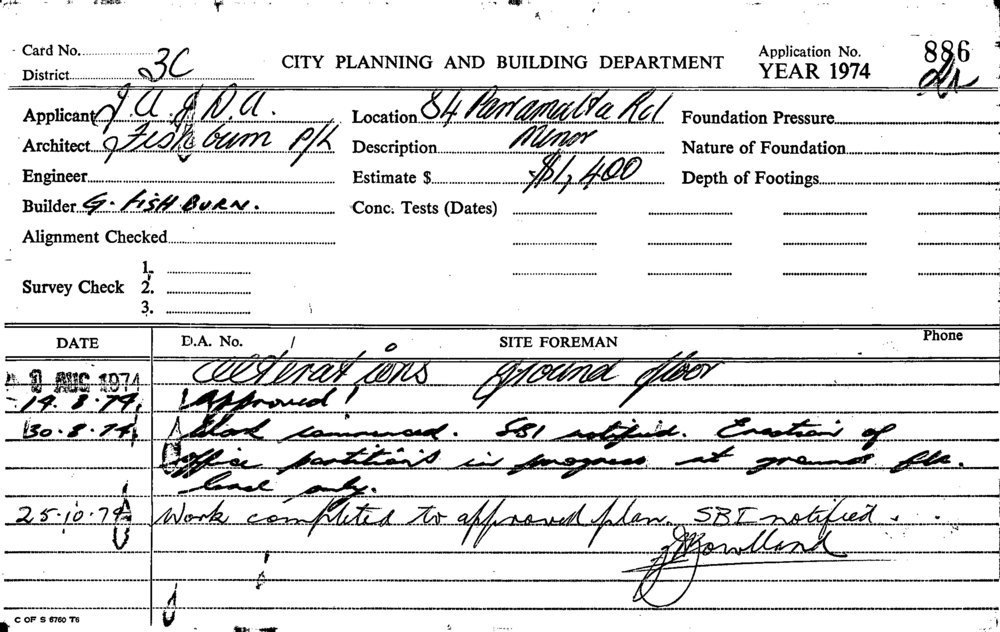 Card No. 3C CITY PLANNING AND BUILDING DEPARTMENT Application No. 886
District YEAR 1974
Applicant J.A. & D.A. Location 84 Parramatta Rd Foundation Pressure
Architect Fishburn P/L Description Minor Nature of Foundation
Engineer Estimate $ $1,400 Depth of Footings
Builder G. FISHBURN. Conc. Tests (Dates)
Alignment Checked
1.
Survey Check 2.
3.
DATE D.A. No. SITE FOREMAN Phone
AUG 1974 Alterations ground floor
14.8.74 "Approved"
30.8.74 Work commenced. SBI notified. Erection of
office partitions in progress at ground flr.
level only.
25.10.74 Work completed to approved plan. SBI notified.
C OF S 6760 T6